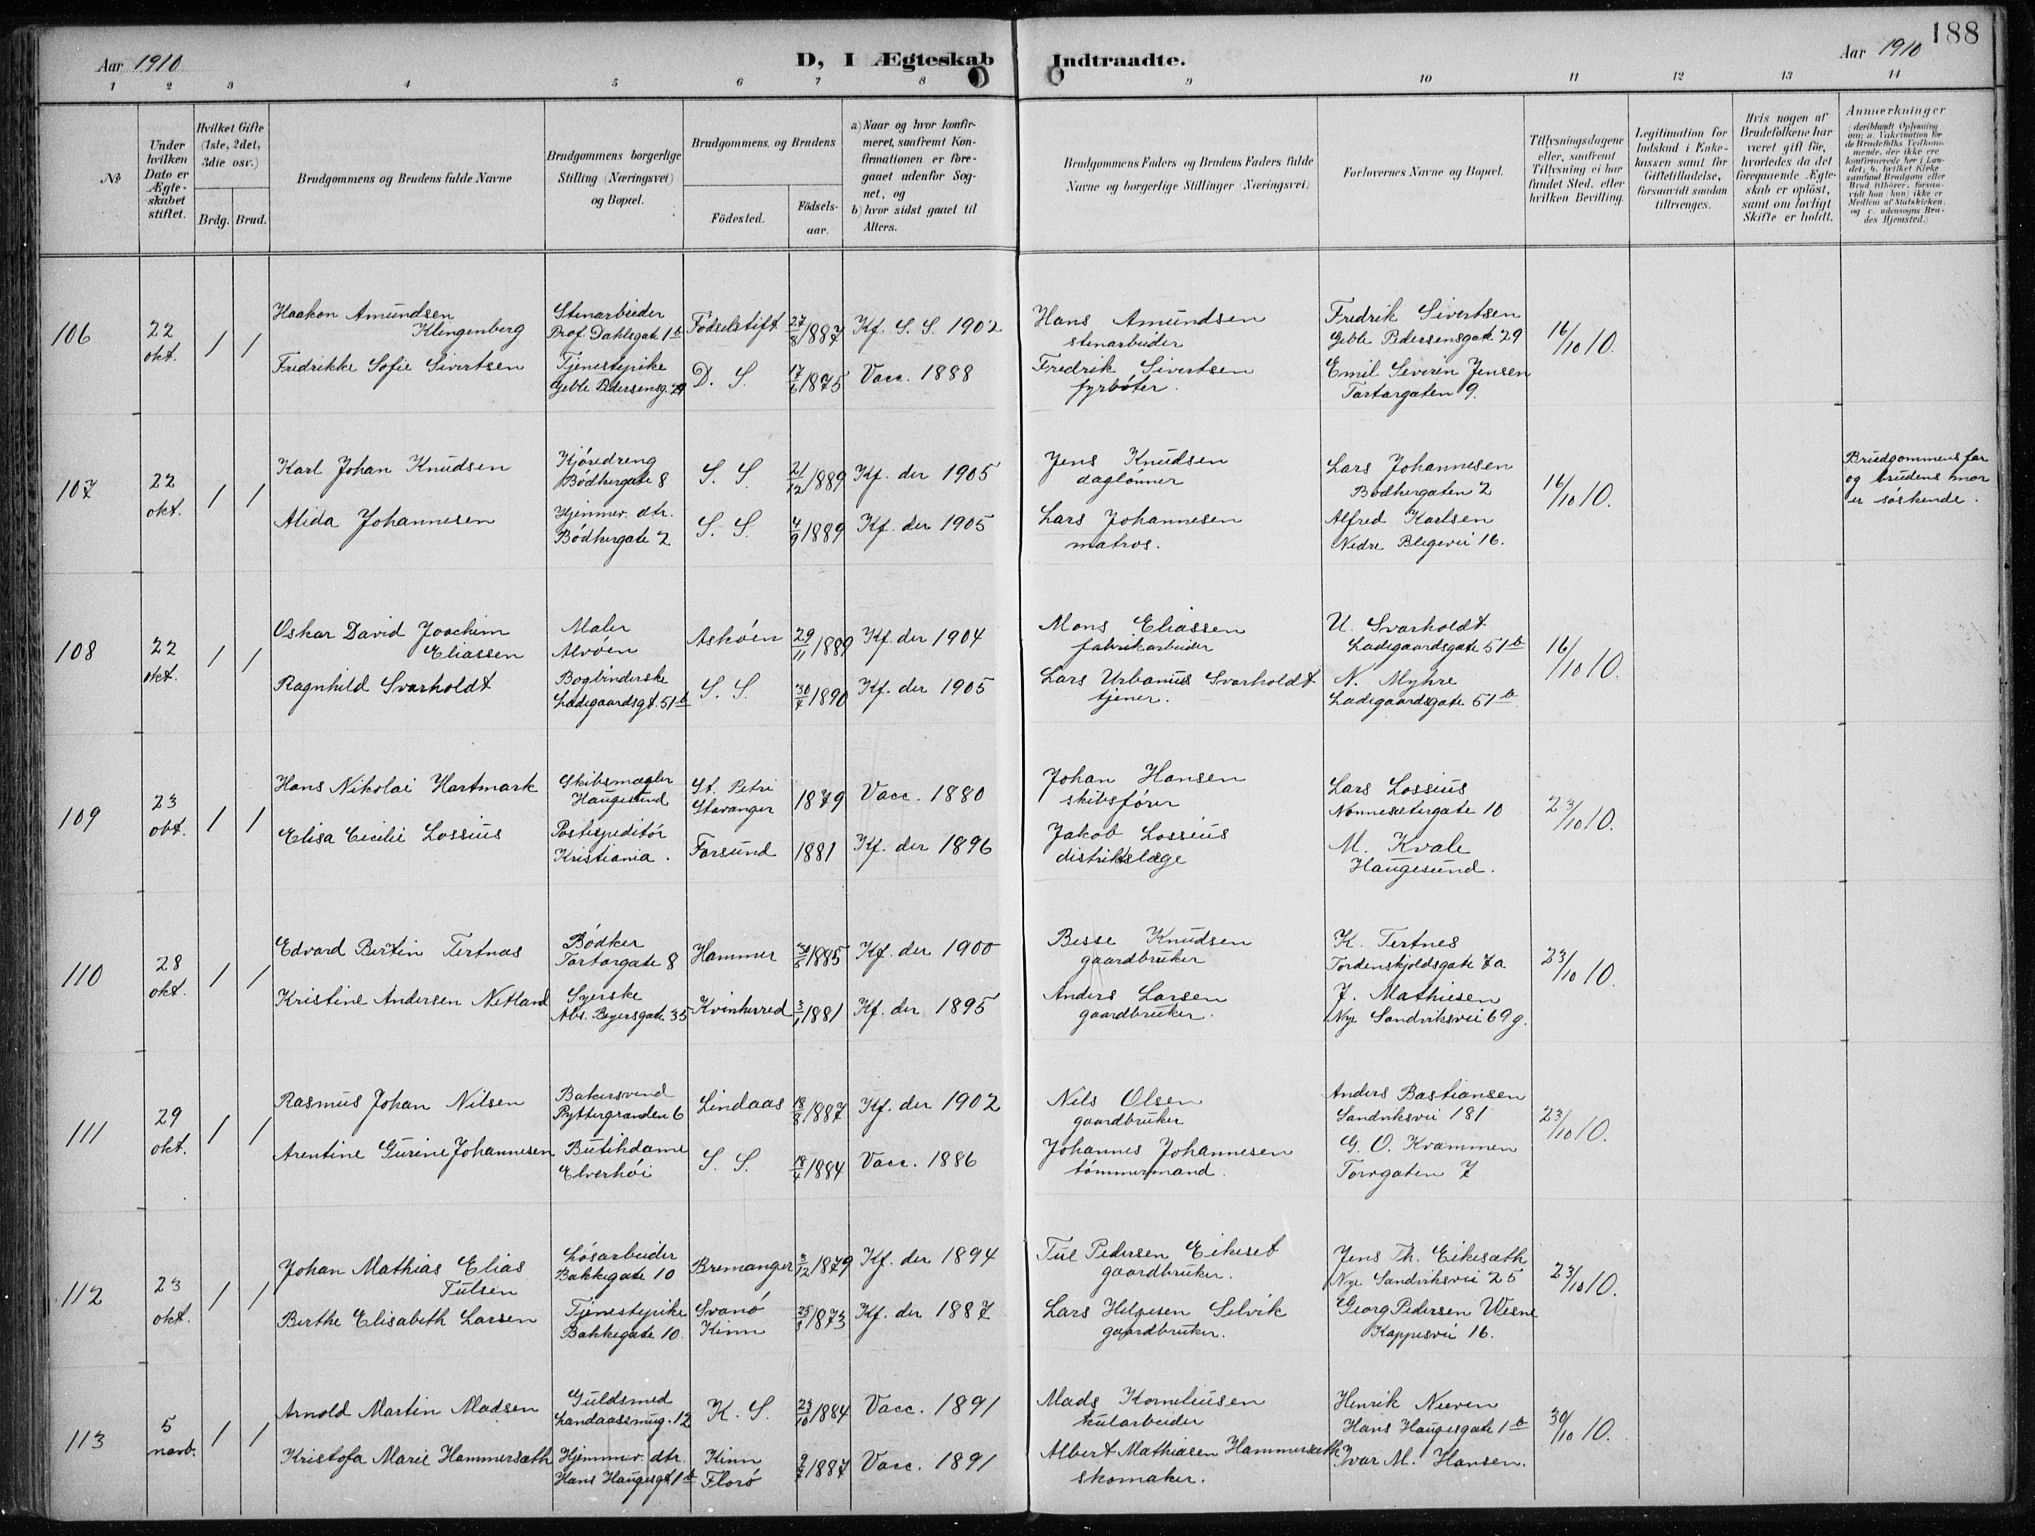 188
Aar 1910
D, I Ægteskab Indtraadte.
Aar 1910
1 2 3 4 5 6 7 8 9 10 11 12 13 14
No
Under hvilken Dato er Ægteskabet stiftet.
Hvilket Gifte (1ste, 2det, 3die osv.)
Brdg. Brud.
Brudgommens og Brudens fulde Navne
Brudgommens borgerlige Stilling (Næringsvei) og Bopæl.
Brudgommens og Brudens
Fødested.
Fødselsaar.
a) Naar og hvor konfirmeret, saafremt Konfirmationen er foregaaet udenfor Sognet, og
b) hvor sidst gaaet til Alters.
Brudgommens Faders og Brudens Faders fulde Navne og borgerlige Stillinger (Næringsvei)
Forlovernes Navne og Bopæl.
Tillysningsdagene eller, saafremt Tillysning ei har fundet Sted, efter hvilken Bevilling.
Legitimation for Indskud i Enkekassen samt for Giftetilladelse, forsaavidt saadan tiltrænges.
Hvis nogen af Brudefolkene har været gift før, hvorledes da det foregaaende Ægteskab er opløst, samt om lovligt Skifte er holdt.
Anmerkninger
(deriblandt Oplysning om: a. Vakcination for de Brudefolks Vedkommende, der ikke ere konfirmerede her i Landet; b. hvilket Kirkesamfund Brudgom eller Brud tilhører, forsaavidt han (hun) ikke er Medlem af Statskirken, og c. udensogns Brudes Hjemsted.)
106
22 okt.
1 1
Haakon Amundsen Klingenberg
Stenarbeider
Prof. Dahlsgate 1b
Fødselstift.
27/8 1887
Kf. S. S. 1902
Hans Amundsen
stenarbeider
Fredrik Sivertsen
Geble Pedersensgate 29
16/10 10.
Fredrikke Sofie Sivertsen
Tjenestepike
Geble Pedersensg. 29
D. S.
17/6 1875
Vacc. 1888
Fredrik Sivertsen
fyrbøter.
Emil Severin Jensen
Tartargaten 9.
107
22 okt.
1 1
Karl Johan Knudsen
Kjøredreng
Bødkergate 8
S. S.
21/12 1889
Kf. der 1905
Jens Knudsen
daglønner
Lars Johannesen
Bødkergaten 2
16/10 10.
Brudgommens far
og brudens mor
er søskende.
Alida Johannesen
Hjemmev. dtr.
Bødkergate 2
S. S.
4/9 1889
Kf. der 1905
Lars Johannesen
matros.
Alfred Karlsen
Nedre Blegevei 16.
108
22 okt.
1 1
Oskar David Joachim Eliassen
Maler
Alvøen
Askøen
29/11 1889
Kf. der 1904
Mons Eliassen
fabrikarbeider
U. Svarholdt
Ladegaardsgate 51b
16/10 10.
Ragnhild Svarholdt
Bogbinderske
Ladegaardsgt. 51b
S. S.
30/7 1890
Kf. der 1905
Lars Urbanus Svarholdt
tjener.
N. Myhre
Ladegaardsgate 51b.
109
23 okt.
1 1
Hans Nikolai Hartmark
Skibsmægler
Haugesund
St. Petri
Stavanger
1879
Vacc. 1880
Johan Hansen
skibsfører
Lars Lossius
Nonnesætergate 10
23/10 10.
Elisa Cecilie Lossius
Postexpeditør
Kristiania.
Farsund
1881
Kf. der 1896
Jakob Lossius
distriktslæge
M. Kvale
Haugesund.
110
28 okt.
1 1
Edvard Bertin Tertnæs
Bødker
Tartargate 8
Hammer
30/5 1885
Kf. der 1900
Besse Knudsen
gaardbruker
K. Tertnes
Tordenskjoldsgate 7a
23/10 10.
Kristine Andersen Netland
Syerske
Abs. Beyersgate 35
Kvinherred
3/1 1881
Kf. der 1895
Anders Larsen
gaardbruker.
J. Mathiesen
Nye Sandviksvei 69g.
111
29 okt.
1 1
Rasmus Johan Nilsen
Bakersvend
Ryttergranden 6
Lindaas
18/8 1887
Kf. der 1902
Nils Olsen
gaardbruker
Anders Bastiansen
Sandviksvei 181
23/10 10.
Arentine Gurine Johannesen
Butikdame
Elverhøi
S. S.
18/4 1884
Vacc. 1886
Johannes Johannesen
tømmermand.
G. O. Krammen
Torvgaten 7
112
23 okt.
1 1
Johan Mathias Elias Tulsen
Løsarbeider
Bakkegate 10
Bremanger
3/12 1879
Kf. der 1894
Tul Pedersen Eikeset
gaardbruker.
Jens Th. Eikesæth
Nye Sandviksvei 25
23/10 10.
Berthe Elisabeth Larsen
Tjenestepike
Bakkegate 10.
Svanø
Kinn
1873
Kf. der 1887
Lars Helgesen Selvik
gaardbruker.
Georg Pedersen Wesne
Kappesvei 16.
113
5 novb.
1 1
Arnold Martin Madsen
Guldsmed
Landaassmug. 12
K. S.
23/10 1884
Vacc. 1891
Mads Korneliusen
kularbeider
Henrik Nieven
Hans Haugesgate 1b
30/10 10.
Kristofa Marie Hammersæth
Hjemmev. dtr.
Hans Haugesgt. 1b
Kinn
Florø
1887
Vacc. 1891
Albert Mathiasen Hammersæth
skomaker.
Ivar M. Hansen.